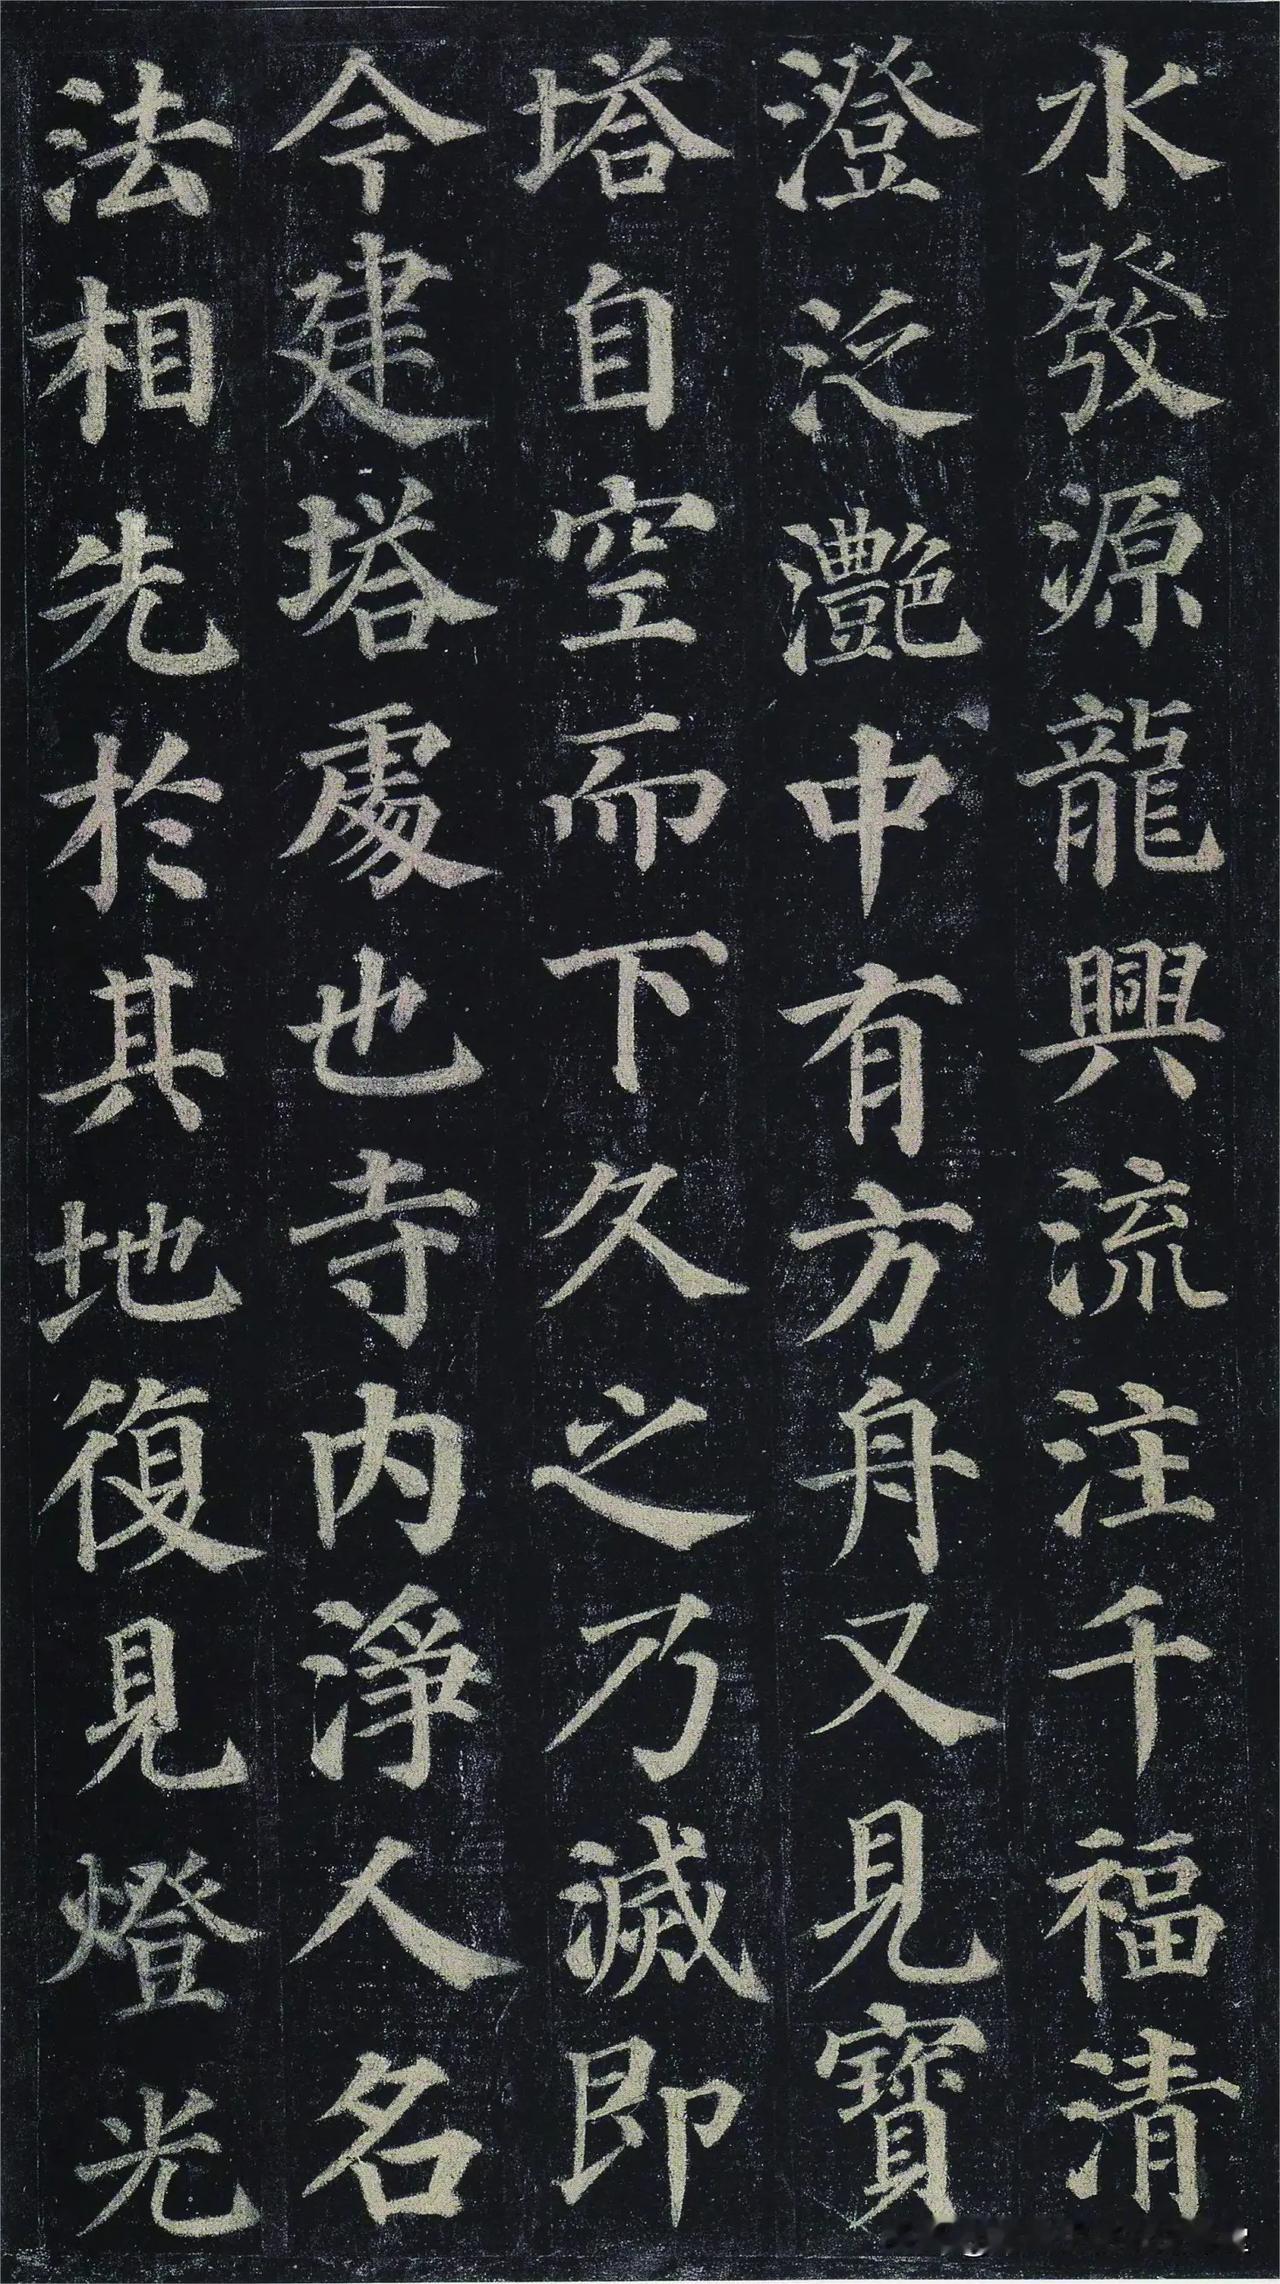 水發源龍興流注千福清
澄泛灔中有方舟又見寶
塔自空而下久之乃滅即
今建塔處也寺内淨人名
法相先於其地復見燈光